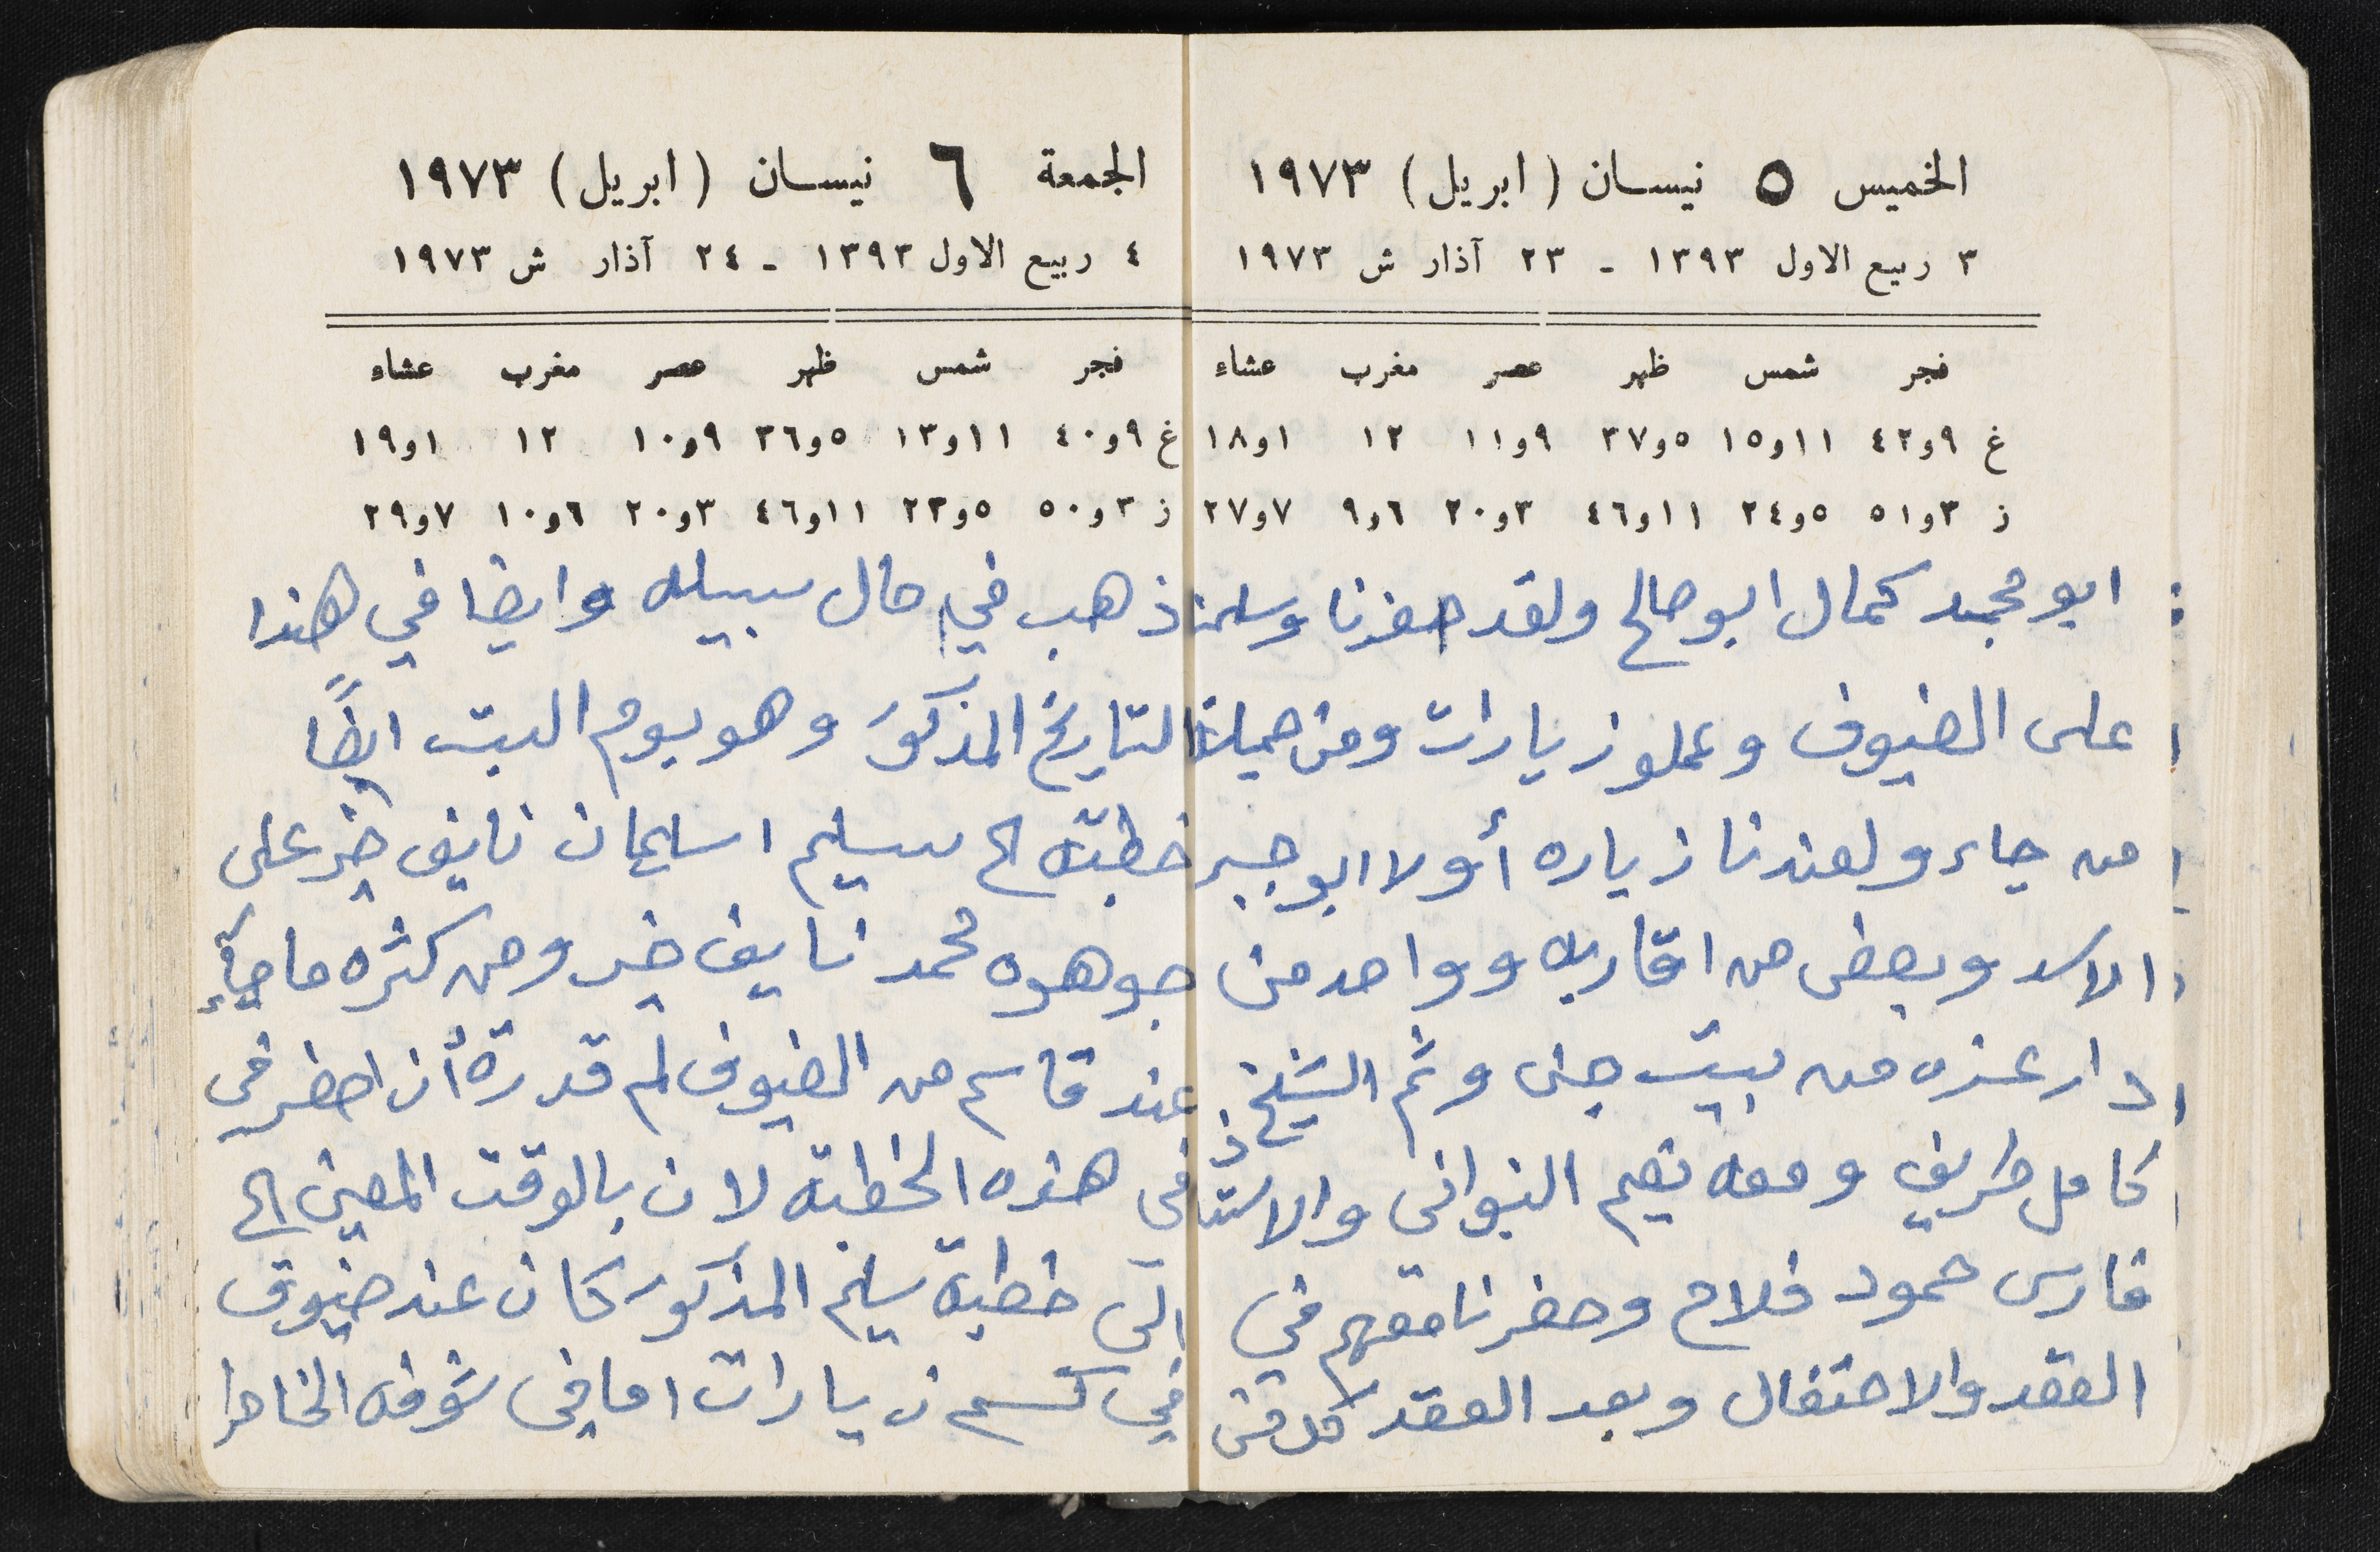 الخميس ٥ نيسان (ابريل) ١٩٧٣
٣ ربيع الاول ١٣٩٣ - ٢٣ آذار ش ١٩٧٣
فجر شمس ظهر عصر مغرب عشاء
غ ٩و٤٢ ١١و١٥ ٥و٣٧ ٩و١١ ١٢ ١و١٨
ز ٣و٥١ ٥و٢٤ ١١و٤٦ ٣و٢٠ ٦و٩ ٧و٢٧
ابو محمد كمال ابو صالح ولقد حضرنا وسلمنا
على الضيوف وعملو زيارات ومن جملة
من جاء ولعندنا زياره أولا ابو جبر
الاسد وبعض من اقاربه وواحد من
دار عزه من بيت جن وثم الشيخ
كامل طريف ومعه نعيم النبوانى والاستاذ
فارس حمود فلاح وحضرنا معهم في
العقد والاحتفال وبعد العقد كل من
الجمعة ٦ نيسان (ابريل) ١٩٧٣
٤ ربيع الاول ١٣٩٣ - ٢٤ آذار ش ١٩٧٣
فجر شمس ظهر عصر مغرب عشاء
غ ٩و٤٠ ١١و١٣ ٥و٣٦ ٩و١٠ ١٢ ١و١٩
ز ٣و٥٠ ٥و٢٣ ١١و٤٦ ٣و٢٠ ٦و١٠ ٧و٢٩
ذهب في حال سبيله وايضا في هذا
التاريخ المذكور وهو يوم السبت ايضًا
خطبته الى سليم اسليمان نايف خير على
جوهره محمد نايف خير ومن كثره ما جآء
عند قاسم من الضيوف لم قدرة أن احضر فى
فى هذه الخطبه لان بالوقت المعين الى
الى خطبة سليم المذكور كان عند ضيوف
في زيارات اما فى شوفه الخاطر